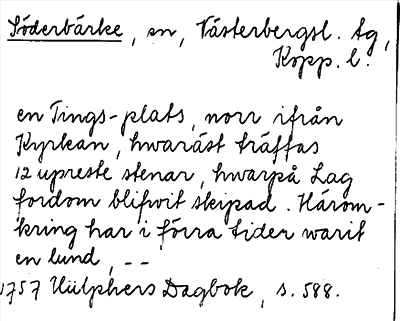 Söderbärke, sn, Västerbergsl. tg,
Kopp. l.
en Tings-plats, norr ifrån
Kyrkan, hwaräst träffas
12 upreste stenar, hwarpå Lag
fordom blifwit skipad. Härom-
kring har i förra tider warit
en lund, --
1757 Hülphers Dagbok, s. 588.